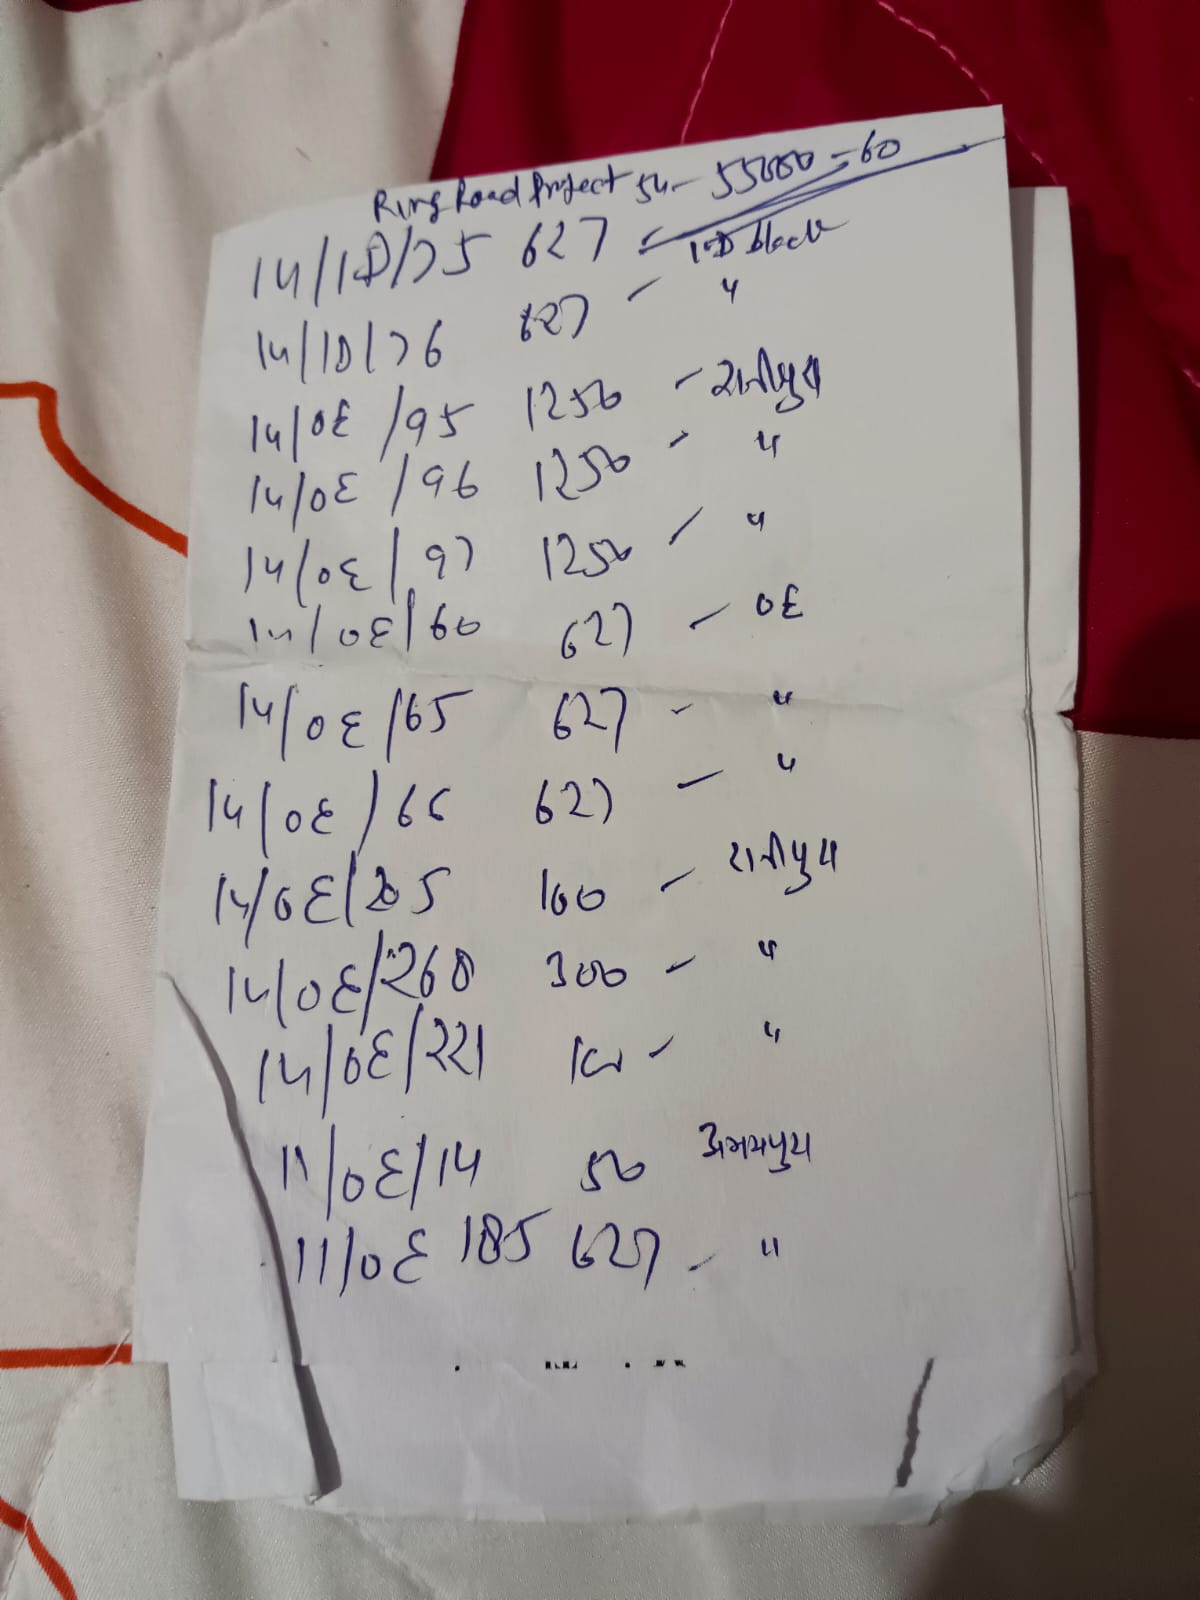 Ring Road Project 54 - 55000 = 60
14/1D/75 627 - 1-D block
14/1D/76 627 - "
14/0E/95 1250 - रानीपुरा
14/0E/96 1250 - "
14/0E/97 1250 - "
14/0E/60 627 - 0E
14/0E/65 627 - "
14/0E/66 627 - "
14/0E/205 100 - रानीपुरा
14/0E/260 300 - "
14/0E/221 - "
11/0E/14 50 अभयपुरा
11/0E 185 627 - "